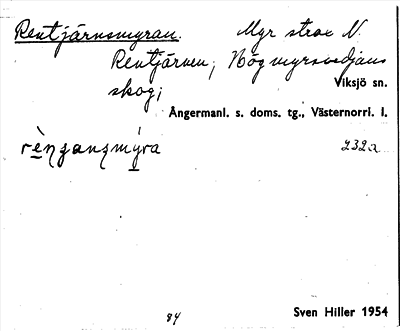 Rentjärnsmyran. Myr strax N.
Rentjärnen; Högmyrsvedjans
Viksjö sn.
skog;
Ångermanl. s. doms. tg., Västernorrl. l.
232a
84
Sven Hiller 1954